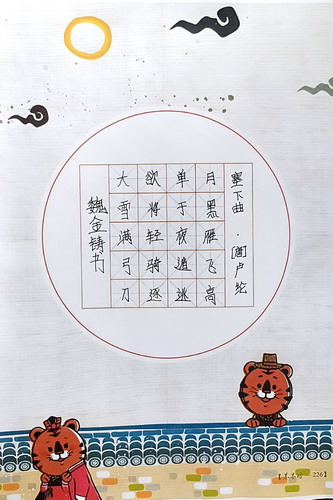 塞下曲·[唐]卢纶
月黑雁飞高
单于夜遁逃
欲将轻骑逐
大雪满弓刀
魏金铸书
226